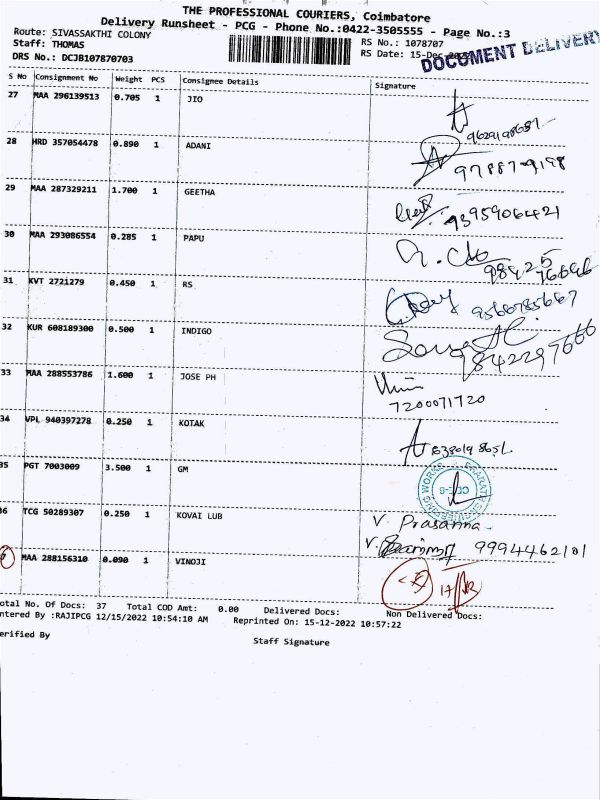 THE PROFESSIONAL COURIERS, Coimbatore
Delivery Runsheet - PCG - Phone No.:0422-3505555 - Page No.:3
Route: SIVASSAKTHI COLONY
RS No.: 1078707
Staff: THOMAS
RS Date: 15-Dec
DOCUMENT DELIVERY
DRS No.: DCJB107870703
S No Consignment No Weight PCS Consignee Details Signature
27 MAA 296139513 0.705 1 JIO
28 HRD 357054478 0.890 1 ADANI
29 MAA 287329211 1.700 1 GEETHA
9395906421
30 MAA 293086554 0.285 1 PAPU
98425
76646
31 KVT 2721279 0.450 1 RS
9566785667
32 KUR 608189300 0.500 1 INDIGO
9842297666
33 MAA 288553786 1.600 1 JOSE PH
7200071720
34 VPL 940397278 0.250 1 KOTAK
35 PGT 7003009 3.500 1 GM
36 TCG 50289307 0.250 1 KOVAI LUB
V. Prasanna
9994462101
37 MAA 288156310 0.090 1 VINOJI
otal No. Of Docs: 37 Total COD Amt: 0.00 Delivered Docs: Non Delivered Docs:
ntered By :RAJIPCG 12/15/2022 10:54:10 AM Reprinted On: 15-12-2022 10:57:22
erified By
Staff Signature